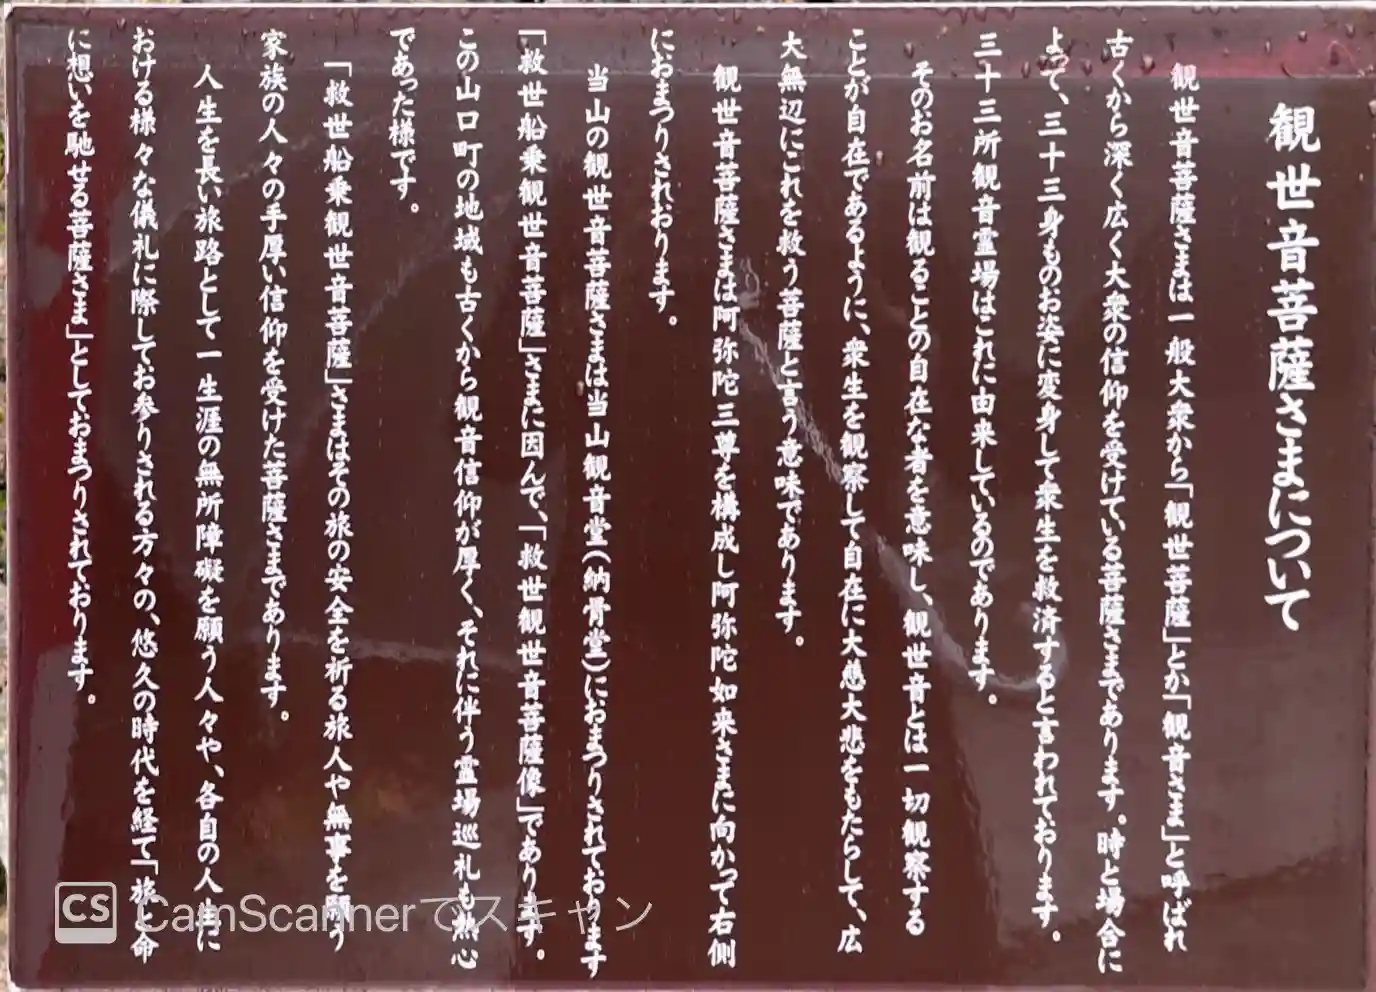 観世音菩薩さまについて
観世音菩薩さまは一般大衆から「観世菩薩」とか「観音さま」と呼ばれ
古くから深く広く大衆の信仰を受けている菩薩さまであります。時と場合に
よって、三十三身ものお姿に変身して衆生を救済すると言われております。
三十三所観音霊場はこれに由来しているのであります。
そのお名前は観ることの自在な者を意味し、観世音とは一切観察する
ことが自在であるように、衆生を観察して自在に大慈大悲をもたらして、広
大無辺にこれを救う菩薩と言う意味であります。
観世音菩薩さまは阿弥陀三尊を構成し阿弥陀如来さまに向かって右側
におまつりされおります。
当山の観世音菩薩さまは当山観音堂(納骨堂)におまつりされております
「救世船乗観世音菩薩」さまに因んで、「救世観世音菩薩像」であります。
この山口町の地域も古くから観音信仰が厚く、それに伴う霊場巡礼も熱心
であった様です。
「救世船乗観世音菩薩」さまはその旅の安全を祈る旅人や無事を願う
家族の人々の手厚い信仰を受けた菩薩さまであります。
人生を長い旅路として一生涯の無所障礙を願う人々や、各自の人生に
おける様々な儀礼に際してお参りされる方々の、悠久の時代を経て「旅と命
に想いを馳せる菩薩さま」としておまつりされております。
CS CamScannerでスキャン